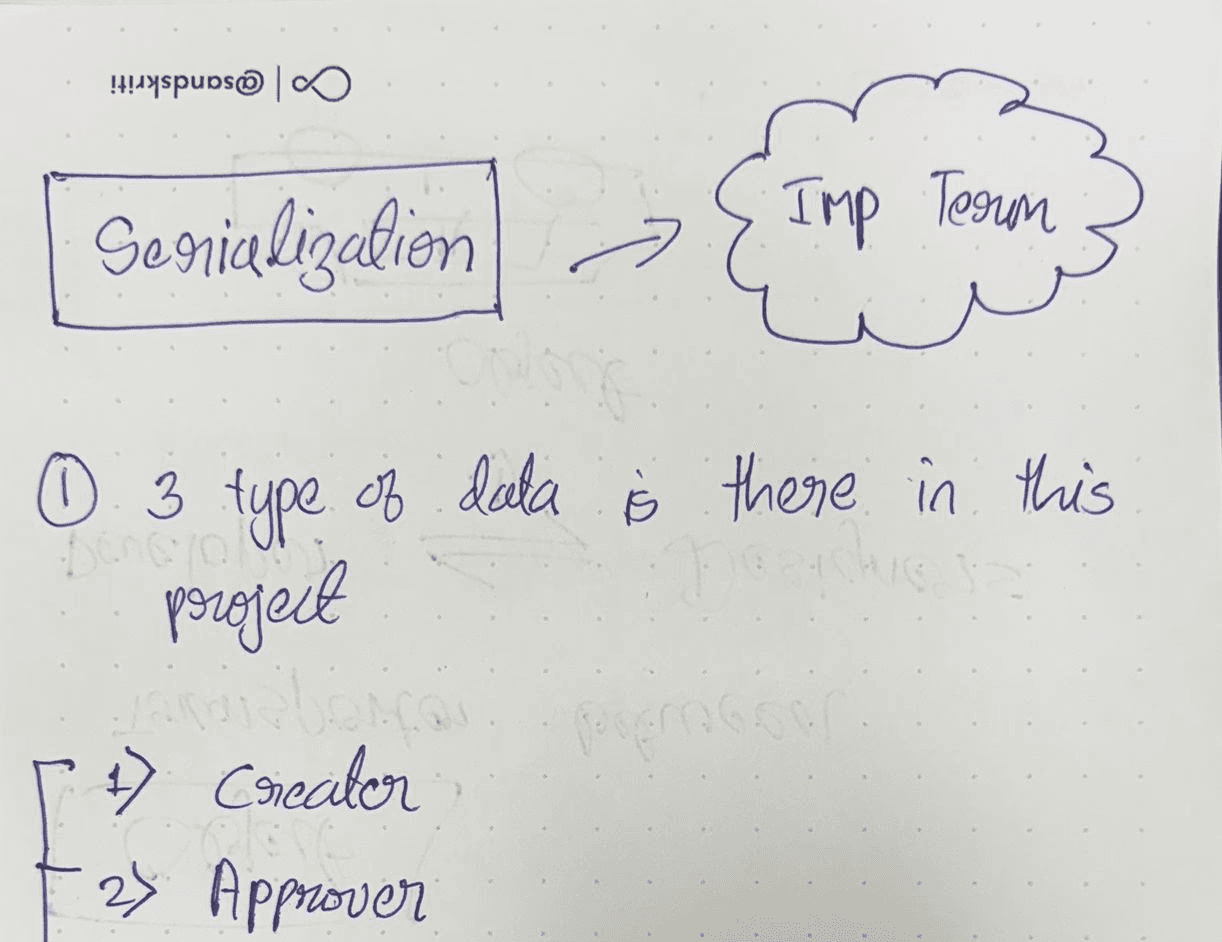 @sandskriti
Serialization
Imp Term
① 3 type of data is there in this
project
1) Creator
2) Approver